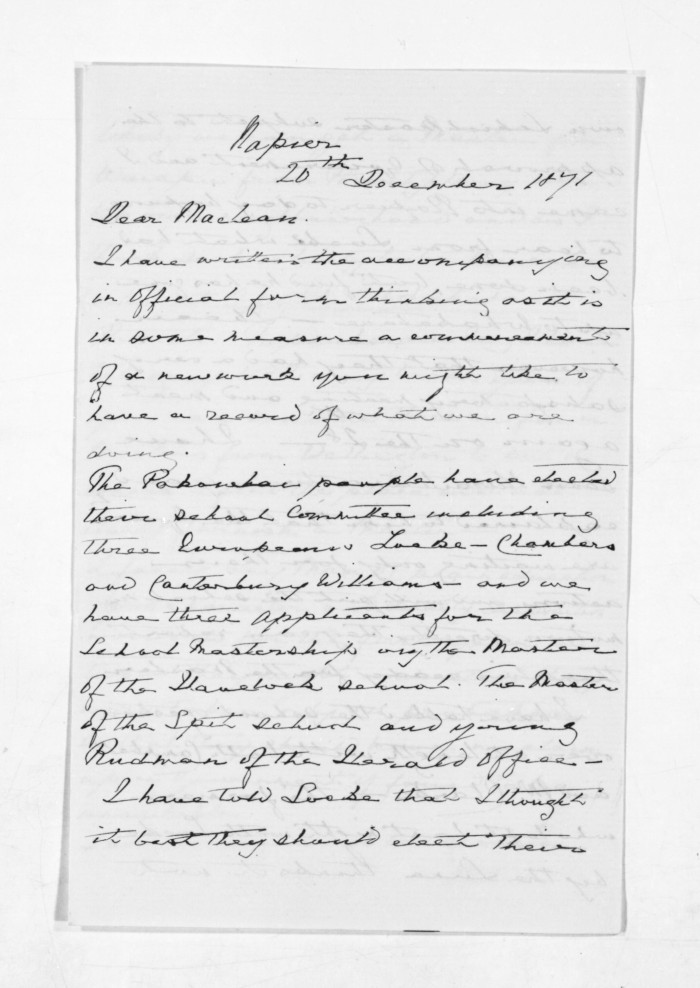 Napier
20th December 1871
Dear Maclean.
I have written the accompanying
in official form thinking as it is
in some measure a commencement
of a new work you might like to
have a record of what we are
doing.
The Pakowhai people have elected
their school Committee including
three Europeans Locke - Chambers
and Canterbury Williams - and we
have three applicants for the
School Mastership viz the Master
of the Havelock school. The Master
of the Spit school and young
Rudman of the Herald Office -
I have told Locke that I thought
it best they should elect their